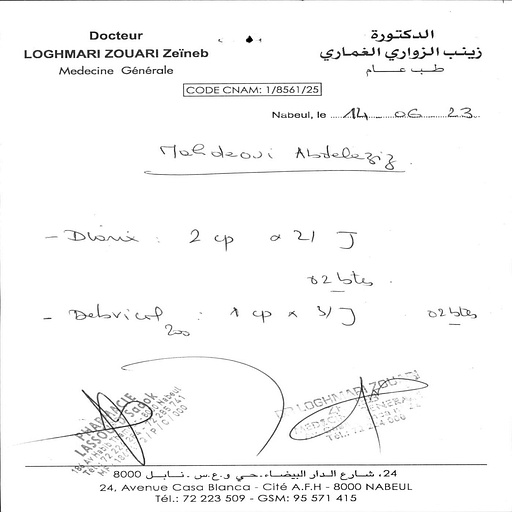 Docteur
LOGHMARI ZOUARI Zeïneb
Medecine Générale
الدكتورة
زينب الزواري الغماري
طب عام
CODE CNAM: 1/8561/25
Nabeul, le 14 06 23
Mahdaoui Abdelaziz
- : 2 cp x 2/ J
02 btes
- Debricol 200 : 1 cp x 3/ J 02 btes
PHARMACIE
LASSOUED
LOGHMARI ZOUARI
24، شارع الدار البيضاء.حي و.ع.س .نابل 8000
24, Avenue Casa Blanca - Cité A.F.H - 8000 NABEUL
Tél.: 72 223 509 - GSM: 95 571 415